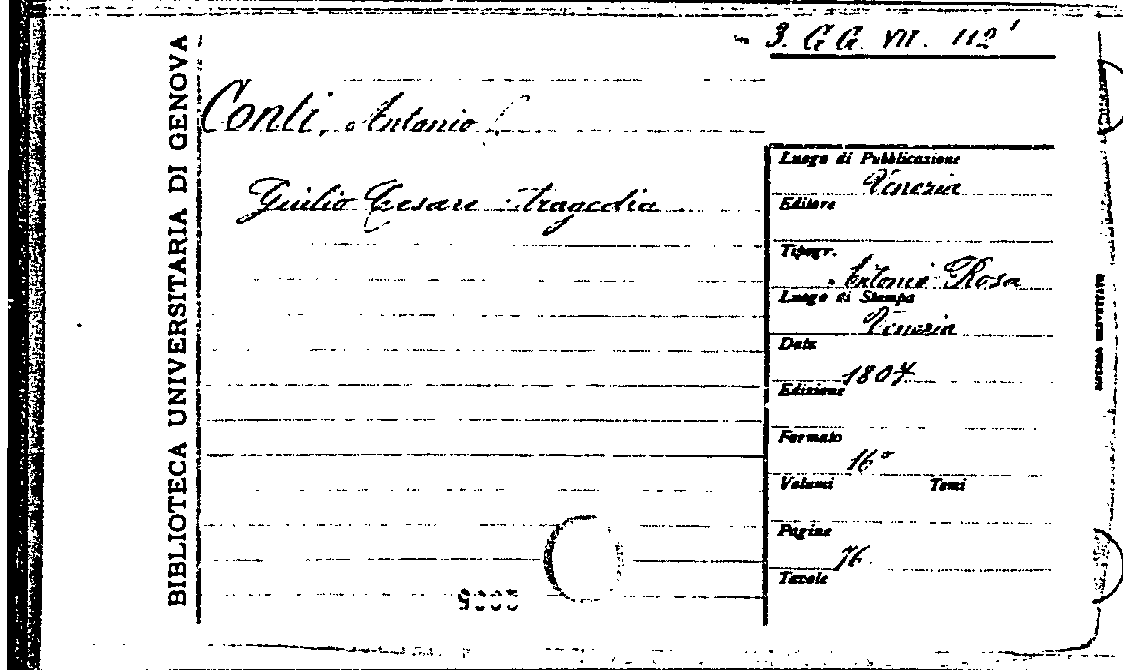 3. GG. VII. 112¹
BIBLIOTECA UNIVERSITARIA DI GENOVA
Conti, Antonio
Giulio Cesare tragedia
Luogo di Pubblicazione
Venezia
Editore
Tipogr.
Antonio Rosa
Luogo di Stampa
Venezia
Data
1807
Edizione
Formato
16°
Volumi Tomi
Pagine
76
Tavole